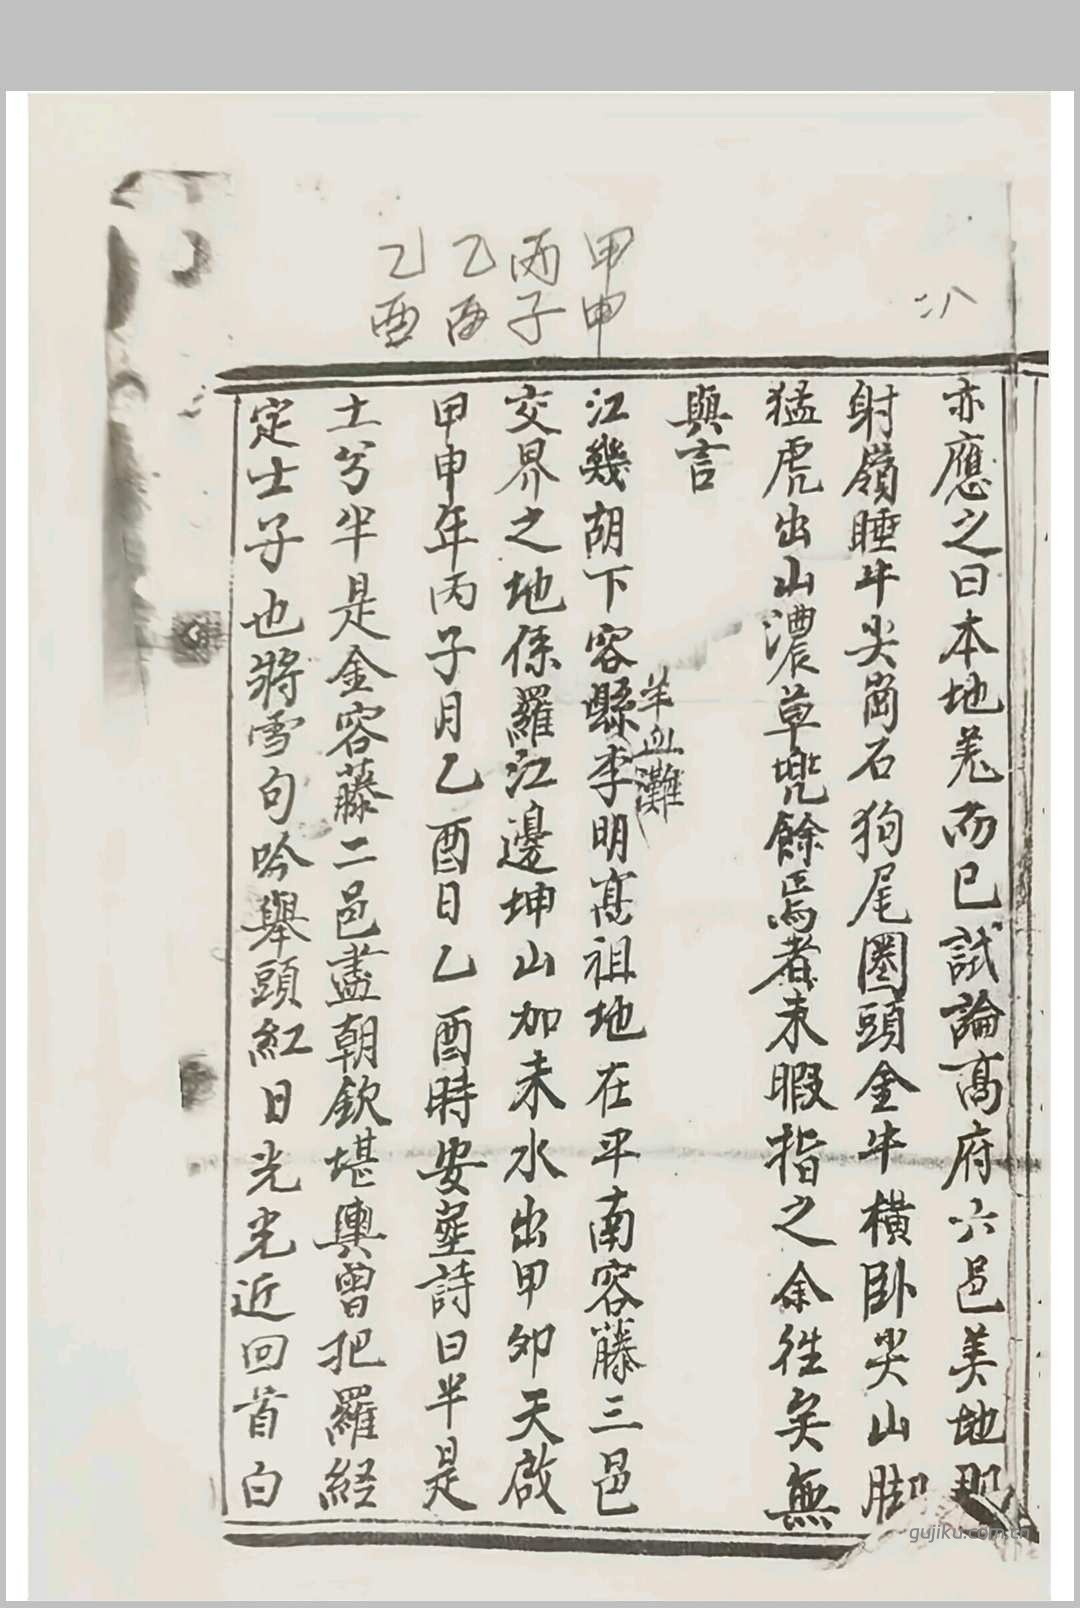 二八
甲申
丙子
乙酉
乙酉
亦應之曰本地羌而已試論高府六邑美地那
射嶺睡牛尖崗石狗尾圈頭金牛橫卧尖山脚
猛虎出山濃草兜餘焉者未暇指之余徃矣無
與言
羊血灘
江幾胡下容縣李明高祖地在平南容藤三邑
交界之地係羅江邊坤山加未水出甲夘天啟
甲申年丙子月乙酉日乙酉時安塟詩曰半是
土兮半是金容藤二邑盡朝欽堪輿曾把羅経
定士子也將雪句吟舉頭紅日光光近回首白
gujiku.com.cn